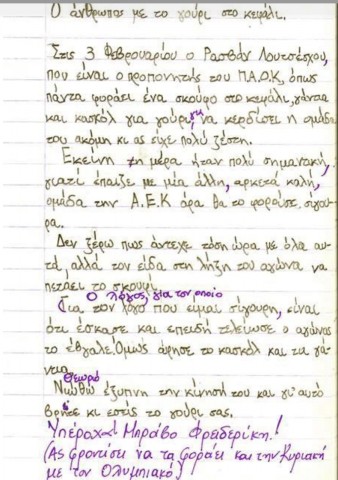 Ο άνθρωπος με το γούρι στο κεφάλι.
Στις 3 Φεβρουαρίου ο Ρασβάν Λουτσέσχου,
που είναι ο προπονητής του Π.Α.Ο.Κ, όπως
πάντα φοράει ένα σκούφο στο κεφάλι, γάντια
και κασκόλ για γούρι, για να κερδίσει η ομάδα
του ακόμη κι ας είχε πολύ ζέστη.
Εκείνη τη μέρα ήταν πολύ σημαντική,
γιατί έπαιζε με μία άλλη, αρκετά καλή,
ομάδα την Α.Ε.Κ άρα θα το φορούσε σίγου-
ρα.
Δεν ξέρω πως άντεχε τόση ώρα με όλα αυ-
τά, αλλά τον είδα στη λήξη του αγώνα να
πετάει το σκουφί.
Ο λόγος, για τον οποίο
Για τον λόγο που είμαι σίγουρη, είναι
ότι έσκασε και επειδή τελείωσε ο αγώνας
το έβγαλε. Όμως άφησε το κασκόλ και τα γά-
ντια.
Θεωρώ
Νιώθω έξυπνη την κίνησή του και γι' αυτό
βρείτε κι εσείς το γούρι σας.
Υπέροχα! Μπράβο Φρειδερίκη!
(Ας φροντίσει να τα φοράει και την Κυριακή
με τον Ολυμπιακό)